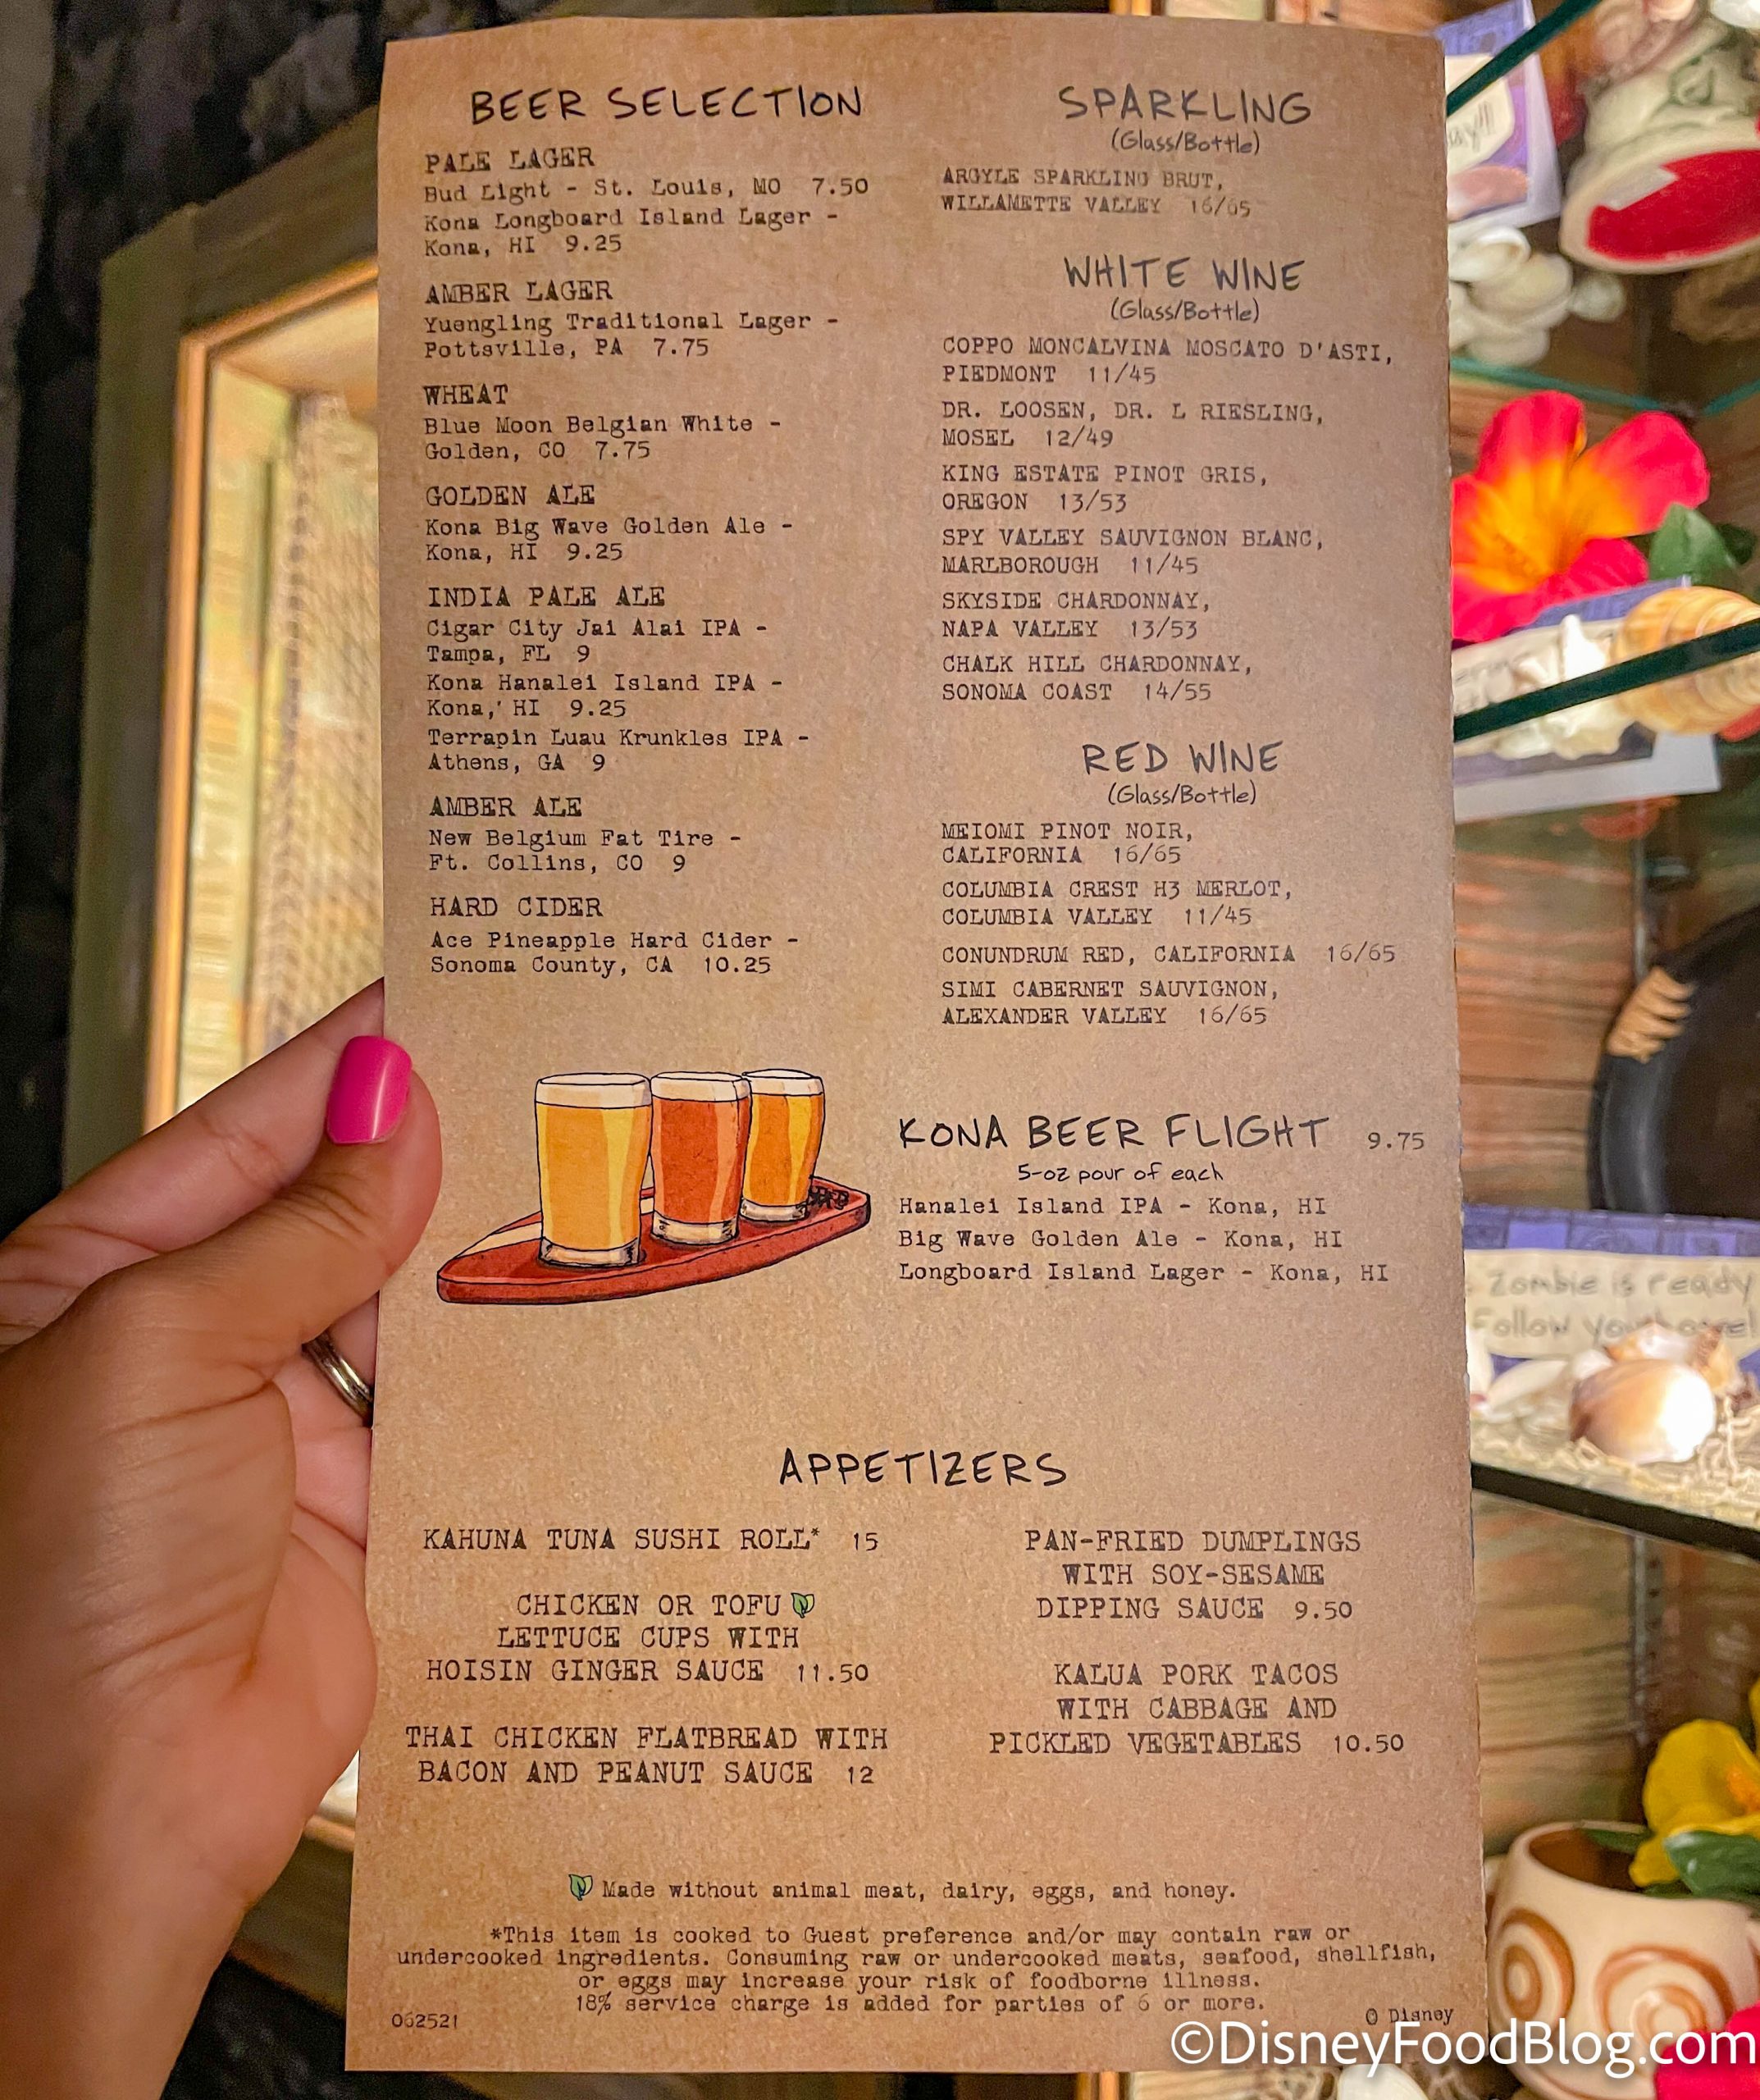 BEER SELECTION
PALE LAGER
Bud Light - St. Louis, MO 7.50
Kona Longboard Island Lager -
Kona, HI 9.25
AMBER LAGER
Yuengling Traditional Lager -
Pottsville, PA 7.75
WHEAT
Blue Moon Belgian White -
Golden, CO 7.75
GOLDEN ALE
Kona Big Wave Golden Ale -
Kona, HI 9.25
INDIA PALE ALE
Cigar City Jai Alai IPA -
Tampa, FL 9
Kona Hanalei Island IPA -
Kona, HI 9.25
Terrapin Luau Krunkles IPA -
Athens, GA 9
AMBER ALE
New Belgium Fat Tire -
Ft. Collins, CO 9
HARD CIDER
Ace Pineapple Hard Cider -
Sonoma County, CA 10.25
SPARKLING
(Glass/Bottle)
ARGYLE SPARKLING BRUT,
WILLAMETTE VALLEY 16/65
WHITE WINE
(Glass/Bottle)
COPPO MONCALVINA MOSCATO D'ASTI,
PIEDMONT 11/45
DR. LOOSEN, DR. L RIESLING,
MOSEL 12/49
KING ESTATE PINOT GRIS,
OREGON 13/53
SPY VALLEY SAUVIGNON BLANC,
MARLBOROUGH 11/45
SKYSIDE CHARDONNAY,
NAPA VALLEY 13/53
CHALK HILL CHARDONNAY,
SONOMA COAST 14/55
RED WINE
(Glass/Bottle)
MEIOMI PINOT NOIR,
CALIFORNIA 16/65
COLUMBIA CREST H3 MERLOT,
COLUMBIA VALLEY 11/45
CONUNDRUM RED, CALIFORNIA 16/65
SIMI CABERNET SAUVIGNON,
ALEXANDER VALLEY 16/65
KONA BEER FLIGHT 9.75
5-oz pour of each
Hanalei Island IPA - Kona, HI
Big Wave Golden Ale - Kona, HI
Longboard Island Lager - Kona, HI
APPETIZERS
KAHUNA TUNA SUSHI ROLL* 15
CHICKEN OR TOFU
LETTUCE CUPS WITH
HOISIN GINGER SAUCE 11.50
THAI CHICKEN FLATBREAD WITH
BACON AND PEANUT SAUCE 12
PAN-FRIED DUMPLINGS
WITH SOY-SESAME
DIPPING SAUCE 9.50
KALUA PORK TACOS
WITH CABBAGE AND
PICKLED VEGETABLES 10.50
Made without animal meat, dairy, eggs, and honey.
*This item is cooked to Guest preference and/or may contain raw or
undercooked ingredients. Consuming raw or undercooked meats, seafood, shellfish,
or eggs may increase your risk of foodborne illness.
18% service charge is added for parties of 6 or more.
062521
© Disney
Zombie is ready
Follow
©DisneyFoodBlog.com